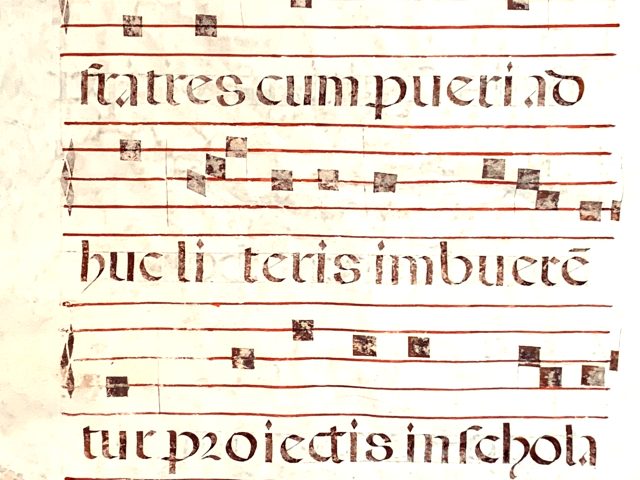 fratres cum pueri ad
huc li teris imbuerē
tur proiectis in schola